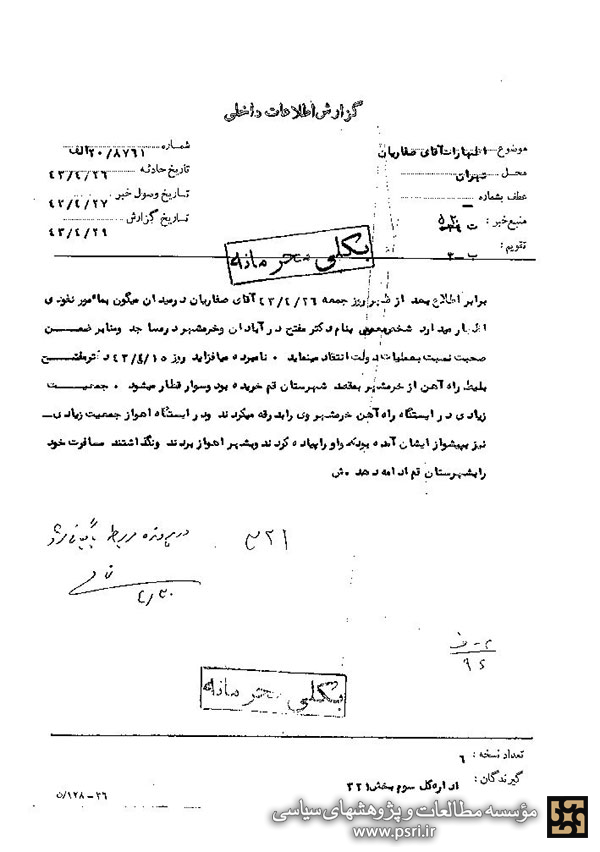 گزارش اطلاعات داخلی
موضوع اظهارات آقای صفاریان
محل تهران
عطف بشماره ـ
منبع خبر :
تقویم : ب ـ ۳
شماره ۲۰/۸۷۶۱ الف
تاریخ حادثه ۴۳/۴/۲۶
تاریخ وصول خبر ۴۳/۴/۲۷
تاریخ گزارش ۴۳/۴/۲۹
بکلی محرمانه
برابر اطلاع بعد از ظهر روز جمعه ۴۳/۴/۲۶ آقای صفاریان در میدان میگون بمأمور نفوذی
اظهار میدارد شخص معممی بنام دکتر مفتح در آبادان و خرمشهر در مساجد و منابر ضمن
صحبت نسبت بعملیات دولت انتقاد مینماید ۰ نامبرده میافزاید روز ۴۳/۴/۱۵ دکتر مفتح
بلیط راه آهن از خرمشهر بمقصد شهرستان قم خریده بود و سوار قطار میشود ۰ جمعیت
زیادی در ایستگاه راه آهن خرمشهر وی را بدرقه میکردند و در ایستگاه اهواز جمعیت زیادی
نیز بپیشواز ایشان آمده بودند و او را پیاده کردند و بشهر اهواز بردند و نگذاشتند مسافرت خود
را بشهرستان قم ادامه دهد ۰ ش
۳۲۱
در پرونده مربوطه بایگانی شود
۴/۳۰
بکلی محرمانه
تعداد نسخه : ۶
گیرندگان : اداره کل سوم بخش ۳۲۱
۳۶-۱۲۸/ن
مؤسسه مطالعات و پژوهشهای سیاسی
www.psri.ir